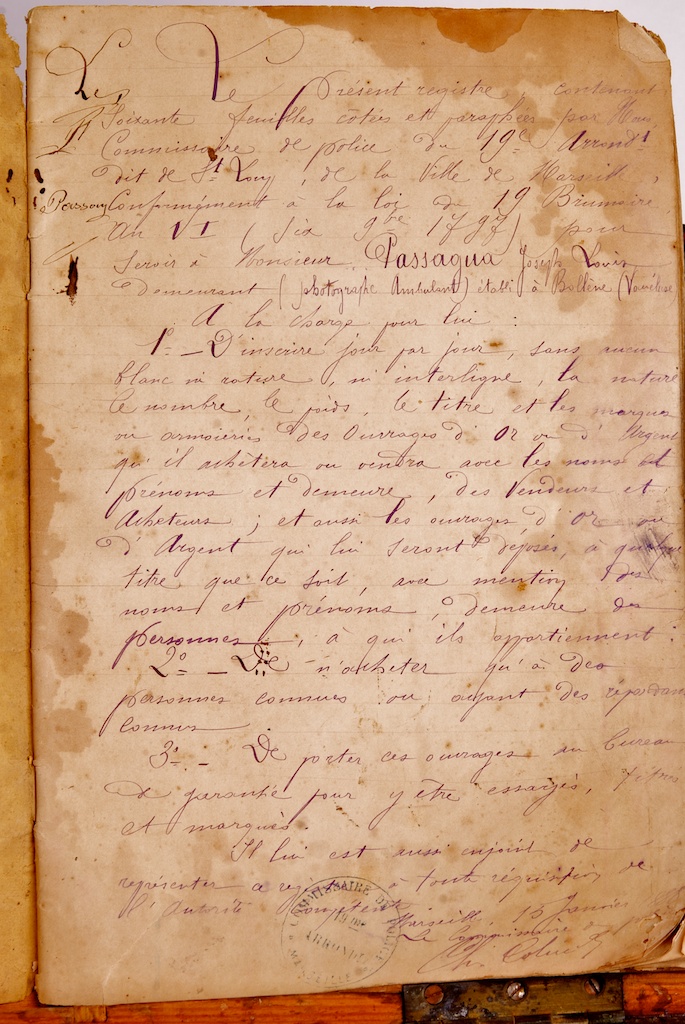 Le Présent registre, contenant
Soixante feuilles côtés et paraphées par Nous
Commissaire de police du 19e Arrondt
dit de St Louy, de la Ville de Marseille,
Passag Conformément à la loi du 19 Brumaire
An VI (six 9bre 1797) pour
servir à Monsieur Passaqua Joseph Louis
demeurant (photographe Ambulant) établi à Bollène (Vaucluse
A la charge pour lui :
1º — D'inscrire jour par jour, sans aucun
blanc ni rature, ni interligne, la nature
le nombre, le poids, le titre et les marques
ou armoieries des Ouvrages d'Or ou d'Argent
qu'il achètera ou vendra avec les noms et
prénoms et demeure, des Vendeurs et
Acheteurs ; et aussi les ouvrages d'Or ou
d'Argent qui lui seront déposés, à quelque
titre que ce soit, avec mention des
noms et prénoms, demeure des
personnes, à qui ils appartiennent :
2º — De n'acheter qu'à des
personnes connues ou ayant des répondans
connus
3º — De porter ces ouvrages au bureau
de garantie pour y être essayés, titrés
et marqués.
Il lui est aussi enjoint de
représenter ce registre à toute réquisition de
l'Autorité Compétente
Marseille, 15 Janvier
Le Commissaire de
COMMISSAIRE DE POLICE
19me
ARRONDt
MARSEILLE